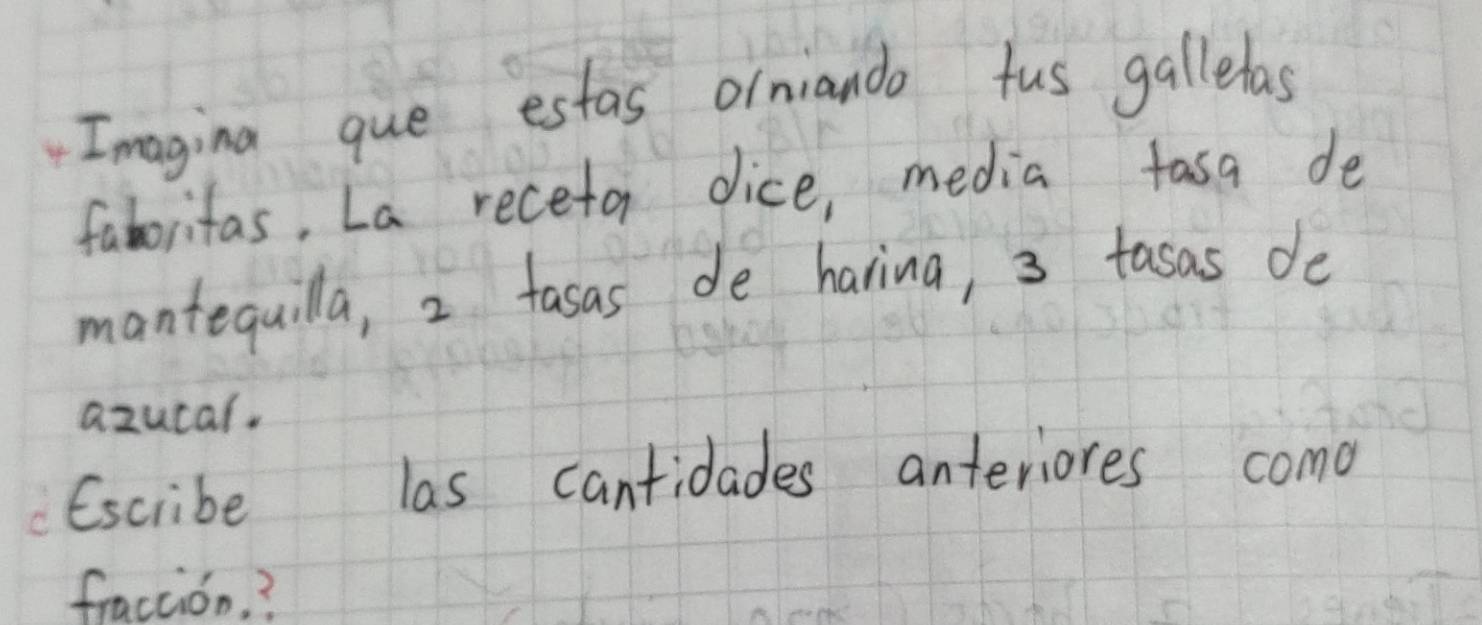 Imagina que estas orniando tus galletas
faboritas. La receta dice, media tasa de
mantequilla, 2 tasas de harina, 3 tasas de
azucar.
¿Escribe las cantidades anteriores como
fracción.?